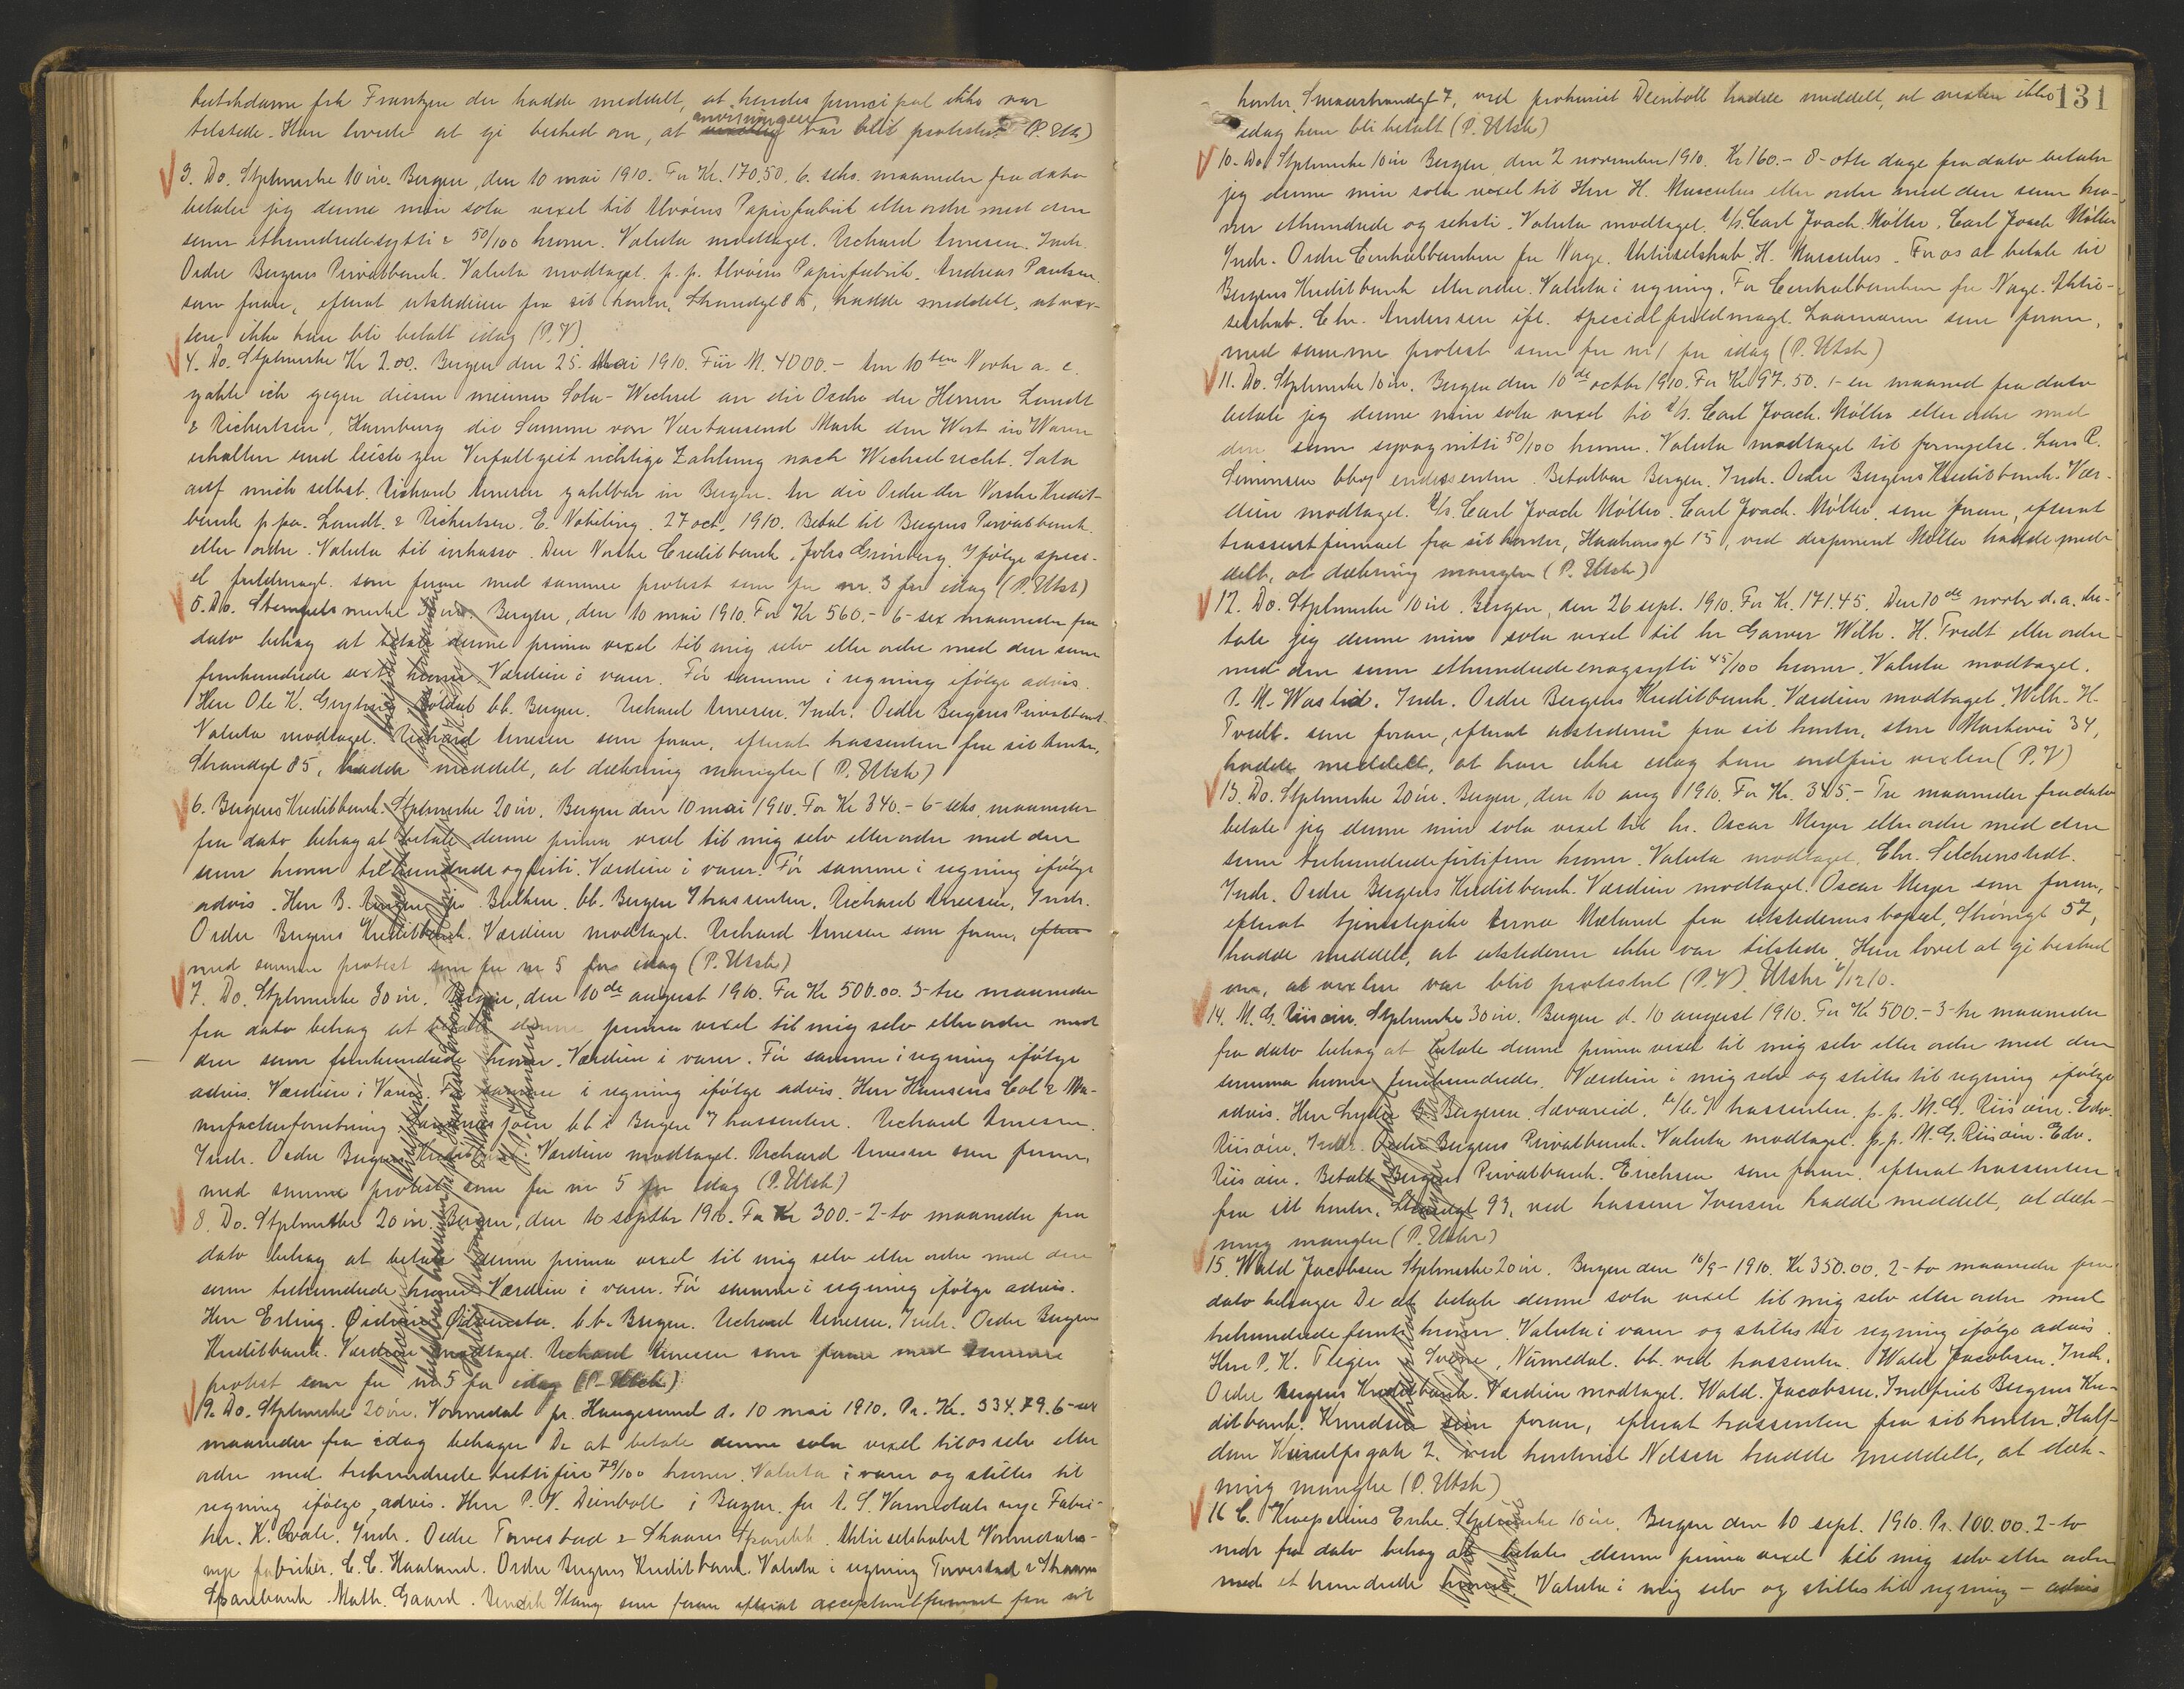 kontordame frk Frantzen der hadde meddelt, at hendes principal ikke var
tilstede. Hun lovede at gi besked om, at anvisningen var blit protestert (P. Utst)
3. Do. Stplmerke 10 øre. Bergen, den 10 mai 1910. For Kr. 170,50. 6. seks. maaneder fra dato
betaler jeg denne min sola vexel til Alvøens Papirfabrik eller ordre med den
sum ethundredesytti & 50/100 kroner. Valuta modtaget. Richard Arnesen. Indr.
Ordre Bergens Privatbank. Valuta modtaget. p.p. Alvøens Papirfabrik. Andreas Paulsen.
som foran, efterat utstederen fra sit kontor, Strandgt 85, hadde meddelt, at vex-
len ikke kan bli betalt idag (P.V.)
4. Do. Stplmerke Kr 2.00. Bergen den 25. Mai 1910. Für M. 4000.- Am 10ten Novbr a. c.
zahle ich gegen diesen meinen Sola-Wechsel an die Ordre der Herren Landt
& Richertsen, Hamburg die Summe von Viertausend Mark den Wert in Waren
erhalten und leiste zur Verfallzeit richtige Zahlung nach Wechselrecht. Sola
auf mich selbst. Richard Arnesen zahlbar in Bergen. An die Ordre der Norske Kredit-
bank p.pa. Landt. & Richertsen. E. Nobiling. 27 oct. 1910. Betal til Bergens Privatbank.
eller ordre. Valuta til inkasso. Den Norske Creditbank. Johs Grünberg. Ifølge speci-
el fuldmagt. som foran med samme protest som for nr. 3 for idag (P. Utst)
5. Do. Stempelsmerke 30 øre. Bergen, den 10 mai 1910. For Kr 560.- 6-sex maaneder fra
dato behag at betale denne prima vexel til mig selv eller ordre med den sum
femhundrede sexti kroner. Værdien i varer. Før samme i regning ifølge advis.
Herr Ole K. Grytnes Røldal bb. Bergen. Richard Arnesen. Indr. Ordre Bergens Privatbank.
Valuta modtaget. Richard Arnesen som foran, efterat trassenten fra sit kontor,
Strandgt 85, hadde meddelt, at dækning mangler (P. Utst)
6. Bergens Kreditbank. Stplmerke 20 øre. Bergen den 10 mai 1910. For Kr 340.- 6-seks, maaneder
fra dato behag at betale denne prima vexel til mig selv eller ordre med den
sum kroner trehundrede og firti. Værdien i varer. Før samme i regning ifølge
advis. Herr B. Bulken. bb. Bergen Trassenten. Richard Arnesen, Indr.
Ordre Bergens Kreditbank. Værdien modtaget. Richard Arnesen som foran, efter
med samme protest som for nr 5 for idag (P. Utst)
7. Do. Stplmerke 30 øre. Bergen, den 10de august 1910. For Kr 500.00. 3-tre maaneder
fra dato behag at betale denne prima vexel til mig selv eller ordre med
den sum femhundrede kroner. Værdien i varer. Før samme i regning ifølge
advis. Værdien i Varer. Før samme i regning ifølge advis. Herr Hansens Col & Ma-
nufacturforretning bb i Bergen Trassenten. Richard Arnesen.
Indr. Ordre Bergens Kreditbank. Værdien modtaget. Richard Arnesen som foran,
med samme protest som for nr 5 for idag (P. Utst)
8. Do. Stplmerke 20 øre. Bergen, den 10 septbr 1910. For Kr 300.- 2-to maaneder fra
dato behag at betale denne prima vexel til mig selv eller ordre med den
sum trehundrede kroner. Værdien i varer. Før samme i regning ifølge advis.
Herr Erling. bb. Bergen. Richard Arnesen. Indr. Ordre Bergens
Kreditbank. Værdien modtaget. Richard Arnesen som foran med samme
protest som for nr 5 for idag (P. Utst)
9. Do. Stplmerke 20 øre. Vormedal pr. Haugesund d. 10 mai 1910. Pr. Kr. 334.79. 6-sex
maaneder fra idag behager De at betale denne sola vexel til os selv eller
ordre med trehundrede trettifire 79/100 kroner. Valuta i varer og stilles til
regning ifølge advis. Herr P. V. Deinboll i Bergen. for A. S. Vormedals nye Fabri-
ker. K. Indr. Ordre Torvestad & Skaares Sparebk. Aktieselskabet Vormedals-
nye fabriker. C. C. Haaland. Ordre Bergens Kreditbank. Valuta i regning Torvestad & Skaares
Sparebank. Math. Gaard. Stang som foran efterat acceptantfirmaet fra sit
131
kontor, Smaastrandgt 7, ved prokurist Deinboll hadde meddelt, at vexlen ikke
idag kan bli betalt (P. Utst)
10. Do. Stplmerke 10 øre Bergen, den 2 november 1910. Kr 160.- 8-otte dage fra dato betaler
jeg denne min sola vexel til Herr H. Musculus eller ordre med den sum kro-
ner ethundrede og seksti. Valuta modtaget. A/S. Carl Joach. Møller. Carl Joach. Møller
Indr. Ordre Centralbanken for Norge. Aktieselskab. H. Musculus. For os at betale til
Bergens Kreditbank eller ordre. Valuta i regning. For Centralbanken for Norge. Aktie-
selskab. Chr. Anderssen ifl. specialfuldmagt. Laamann som foran,
med samme protest som for nr 1 for idag (P. Utst)
11. Do. Stplmerke 10 øre. Bergen den 10de octbr 1910. For Kr 97.50. 1-en maaned fra dato
betale jeg denne min sola vexel til A/S. Carl Joach. Møller eller ordre med
den sum syvognitti 50/100 kroner. Valuta modtaget til fornyelse. Lars R.
Simonsen bb endossenten. Betalbar Bergen. Indr. Ordre Bergens Kreditbank. Vær-
dien modtaget. A/S. Carl Joach Møller. Carl Joach. Møller. som foran, efterat
trassentfirmaet fra sit kontor, Haakonsgt 15, ved disponent Møller hadde med-
delt, at dækning mangler (P. Utst)
12. Do. Stplmerke 10 øre. Bergen, den 26 sept. 1910. For Kr. 171.45. Den 10de novbr d.a. be-
tale jeg denne min sola vexel til hr Garver Wilh. H. Tvedt eller ordre
med den sum ethundredeenogsytti 45/100 kroner. Valuta modtaget.
Indr. Ordre Bergens Kreditbank. Værdien modtaget. Wilh. H.
Tvedt. som foran, efterat utstederen fra sit kontor, store Markevei 34,
hadde meddelt, at han ikke idag kan indfri vexlen (P.V)
13. Do. Stplmerke 20 øre. Bergen, den 10 aug 1910. For Kr. 345.- Tre maaneder fra dato
betale jeg denne min sola vexel til hr. Oscar Meyer eller ordre med den
sum trehundredefirtifem kroner. Valuta modtaget. Chr. Silchenstedt.
Indr. Ordre Bergens Kreditbank. Værdien modtaget. Oscar Meyer som foran,
efterat tjenestepike Anna Mæland fra utstederens bopæl, Strømgt 57,
hadde meddelt, at utstederen ikke var tilstede. Hun lovet at gi besked
om, at vexlen var blit protestert (P.V) Utstr 6/12 10.
14. M. G. Riisøen. Stplmerke 30 øre. Bergen d. 10 august 1910. For Kr 500.- 3-tre maaneder
fra dato behag at betale denne prima vexel til mig selv eller ordre med den
summa kroner femhundrede. Værdien i mig selv og stilles til regning ifølge
advis. Herr Lyder B. Bergesen. Sævareid. trassenten. p.p. M. G. Riisøen. Edv.
Riisøen. Indr. Ordre Bergens Privatbank. Valuta modtaget. p.p. M. G. Riisøen. Edv.
Riisøen. Betalt Bergens Privatbank. Erichsen som foran, efterat trassenten
fra sit kontor, Strandgt 93, ved kasserer Iversen hadde meddelt, at dæk-
ning mangler (P. Utstr)
15. Wald Jacobsen Stplmerke 20 øre. Bergen den 10/9-1910. Kr 350.00. 2-to maaneder fra
dato behager De at betale denne sola vexel til mig selv eller ordre med
trehundredefemti kroner. Valuta i varer og stilles til regning ifølge advis.
Herr P. K. bb. ved trassenten. Wald Jacobsen. Indr.
Ordre Bergens Kreditbank. Værdien modtaget. Wald. Jacobsen. Indfriet Bergens Kre-
ditbank. Knudsen som foran, efterat trassenten fra sit kontor, Half-
dan Kjerulfsgate 2. ved kontorist Nilsen hadde meddelt, at dæk-
ning mangler (P. Utst)
16 C. Kroepeliens Enke. Stplmerke 10 øre. Bergen den 10 sept. 1910. Pr. 100.00. 2-to
mdr fra dato behag at betale denne prima vexel til mig selv eller ordre
med et hundrede kroner. Valuta i mig selv og stilles til regning - advis